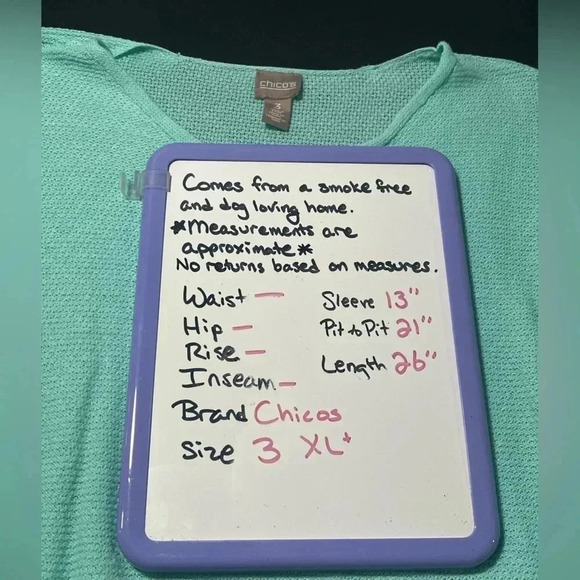 chico's
3
Comes from a smoke free
and dog loving home.
*Measurements are
approximate*
No returns based on measures.
Waist —
Hip —
Rise —
Inseam —
Sleeve 13"
Pit to Pit 21"
Length 26"
Brand Chicos
Size 3 XL+